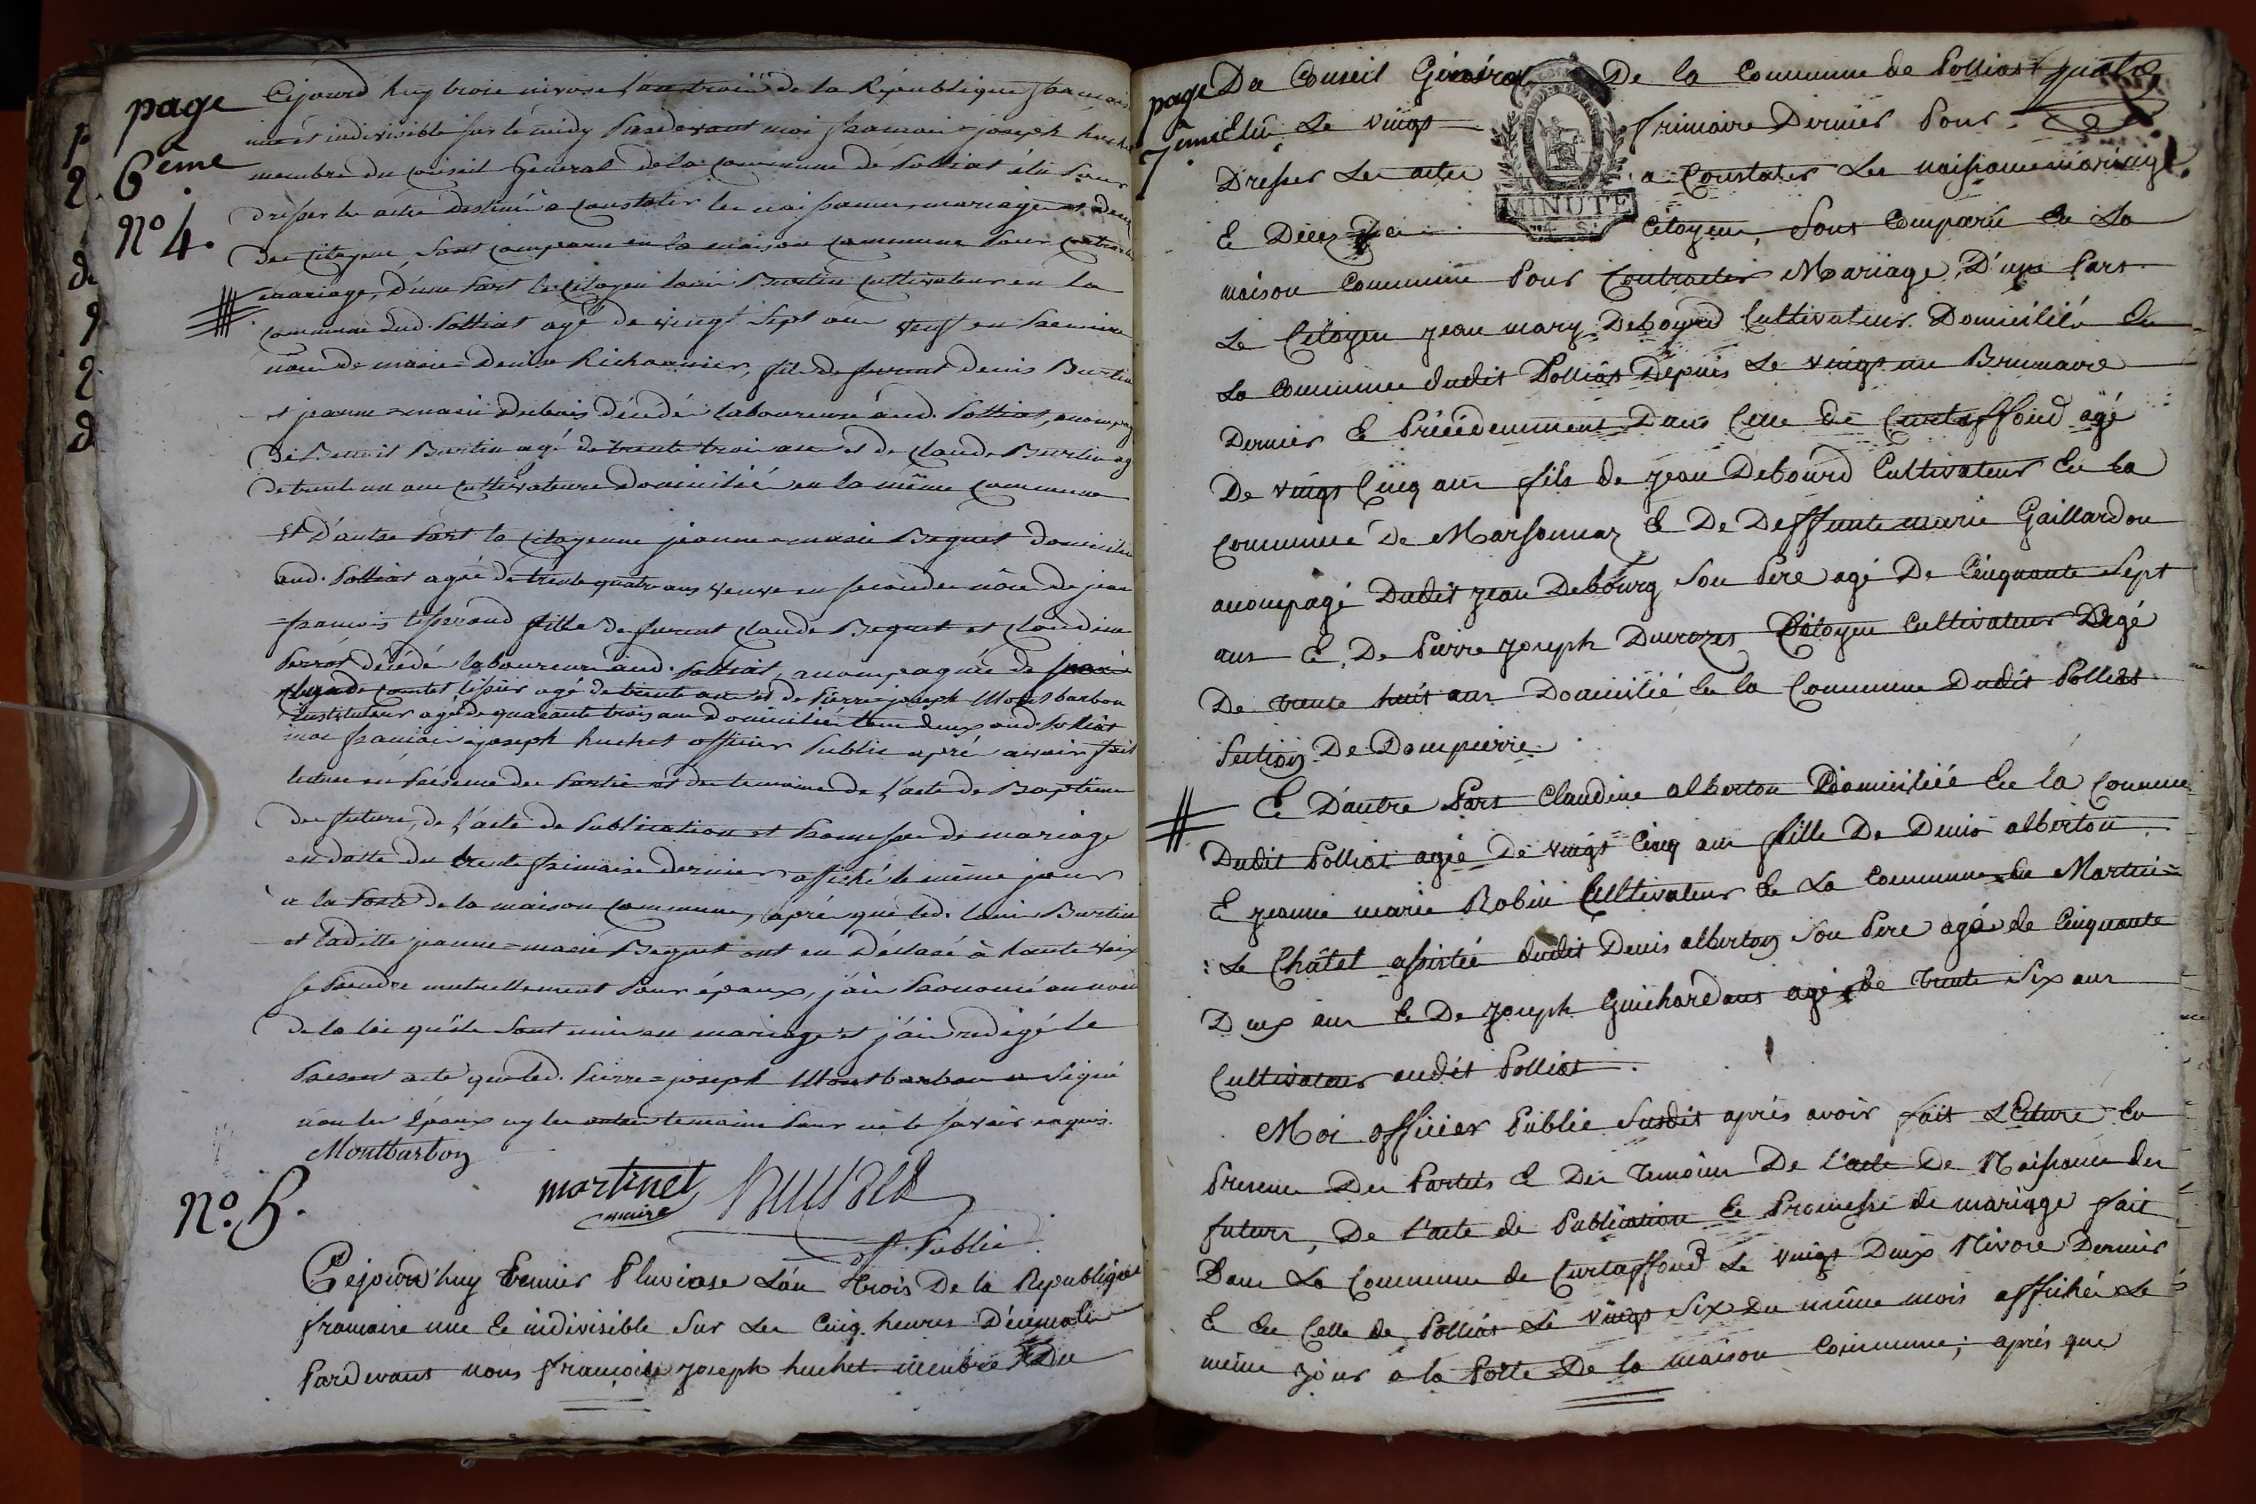 page
6ême
No 4.
Cejourd huy trois nivose l'an troiz de la République francaise
une et indivisible sur le midy Pardevant moi francois=joseph huchet
membre du conseil General de la commune de Polliat élu Pour
dresser les actes destinés a constater les naissances, mariages et deces
des citoyens, sont comparu en la maison commune Pour contracter
mariage, D'une Part le citoyen louis Burtin cultivateur en la
commune dud. Polliat agé de vingt sept ans veuf en Premiere
nôce de marie=Denise Richonnier, fils de furent denis Burtin
et jeanne=marie Dubois décédés laboureurs aud. Polliat, accompag
De Benoit Burtin agé de trente trois ans et de claude Burtin ag
de trente un ans cultivateurs domiciliés en la même commune
Et D'autre Part la citoyenne jeanne=marie Beguet domiciliée
aud. Polliat agée de trente quatre ans veuve en seconde nôce de jean
=francois tisserand fille de furent claude Beguet et claudine
Perrot décédés laboureurs aud. Polliat, accompagnée de
claude comtet tissier agé de trente ans et de Pierre=joseph Montbarbon
Instituteur agé de quarante trois ans domiciliés tous deux aud. Polliat
moi francois=joseph huchet officier Public aprés avoir fait
lecture en Présence des Parties et des temoins de l'acte de Baptême
des futurs, de l'acte de Publication et Promesse de mariage
en datte du trente frimaire dernier affiché le même jour
a la Porte de la maison commune, aprés que led. louis Burtin
et ladite jeanne=marie Beguet ont eu Déclaré à haute voix
se Prendre mutuellement Pour époux, j'ai Prononcé au nom
de la loi qu'ils sont unis en mariage et j'ai redigé le
Present acte que led. Pierre=joseph Montbarbon a signé
non les Epoux ny les autres temoins Pour ne le savoir enquis.
Montbarbon
martinet
maire
huchet
off. Public
No. 5.
Cejourd'huy Premier Pluviose L'an trois De la Republique
francaise une & indivisible Sur Les Cinq heures Décimales
Pardevant nous francois joseph huchet membre Du
page
7eme
Du Conseil Général De la Commune de Polliat quatre
Elû Le vingt frimaire Dernier Pour
Dresser Les actes a Constater Les naissances mariages
& Décez Des Citoyens, Sont Comparû En La
maison Commune Pour Contracter Mariage, D'une Part
Le Citoyen jean mary Debourd Cultivateur Domicilié En
La Commune dudit Polliat Depuis Le vingt un Brumaire
Dernier & Précédemment Dans Celle de Curtaffond agé
De vingt Cinq ans fils de jean Debourd Cultivateur En La
Commune De Marsonnaz & De Deffunte marie Gaillardon
acompagé Dudit jean Debourg Son Pere agé De Cinquante Sept
ans & De Pierre joseph Duvozet Citoyen Cultivateur Agé
De trente huit ans Domicilié En la Commune Dudit Polliat
Section De Dompierre
& D'autre Part Claudine alberton Domiciliée En la Commune
Dudit Polliat agée De vingt Cinq ans fille De Denis alberton
& jeanne marie Robin Cultivateur En La Commune de Martin=
: Le Châtel assistée dudit Denis alberton Son Pere agé de Cinquante
Deux ans & De joseph Guichardant agé de trente Six ans
Cultivateur audit Polliat.
Moi officier Public Susdit aprés avoir fait LEcture En
Presence Des Parties & Des temoins De l'acte De Naissance des
futurs, De l'acte de Publication & Promesse de mariage fait
Dans La Commune de Curtaffond Le vingt Deux Nivose Dernier
& En Celle de Polliat Le vingt Six du même mois affiché Le
même jour a la Porte De la maison Commune; aprés que
MINUTE